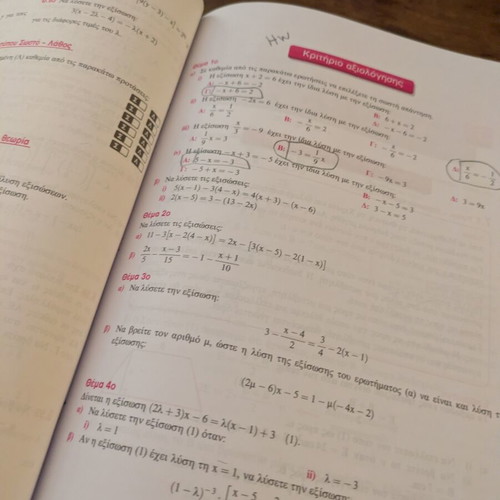 Να λύσετε την εξίσωση:
3(x − 2λ − 4) = −λ(x + 3)
για τις διάφορες τιμές του λ.
Σωστό – Λάθος
καθεμία από τις παρακάτω προτάσεις
Θεωρία
λυση εξισώσεων.
HW
Κριτήριο αξιολόγησης
Θέμα 1ο
Σε καθεμία από τις παρακάτω ερωτήσεις να επιλέξετε τη σωστή απάντηση.
i) Η εξίσωση x + 2 = 6 έχει την ίδια λύση με την εξίσωση:
A: −x + 6 = −2
B: 6 + x = 2
Γ: −x + 6 = 2
Δ: −x − 6 = −2
ii) Η εξίσωση −2x = 6 έχει την ίδια λύση με την εξίσωση:
A: x/6 = 1/2
B: −x/6 = 2
Γ: −x/6 = −2
Δ: x/6 = −1/2
iii) Η εξίσωση x/3 = −9 έχει την ίδια λύση με την εξίσωση:
A: 1/9 x = 3
B: −3 = 1/9 x
Γ: −9x = 3
Δ: 3 = 9x
iv) Η εξίσωση −x + 3 = −5 έχει την ίδια λύση με την εξίσωση:
A: 5 − x = −3
B: −x − 5 = 3
Γ: −5 + x = −3
Δ: 3 − x = 5
β) Να λύσετε τις εξισώσεις:
i) 5(x − 1) − 3(4 − x) = 4(x + 3) − (x − 6)
ii) 2(x − 5) = 3 − (13 − 2x)
Θέμα 2ο
Να λύσετε τις εξισώσεις:
α) 11 − 3[x − 2(4 − x)] = 2x − [3(x − 5) − 2(1 − x)]
β) 2x/5 − x − 3/15 = −1 − x + 1/10
Θέμα 3ο
α) Να λύσετε την εξίσωση:
3 − x − 4/2 = 3/4 − 2(x − 1)
β) Να βρείτε τον αριθμό μ, ώστε η λύση της εξίσωσης του ερωτήματος (α) να είναι και λύση τ
εξίσωσης:
(2μ − 6)x − 5 = 1 − μ(−4x − 2)
Θέμα 4ο
Δίνεται η εξίσωση (2λ + 3)x − 6 = λ(x − 1) + 3 (1).
α) Να λύσετε την εξίσωση (1) όταν:
i) λ = 1
ii) λ = −3
β) Αν η εξίσωση (1) έχει λύση τη x = 1, να λύσετε την εξίσωση